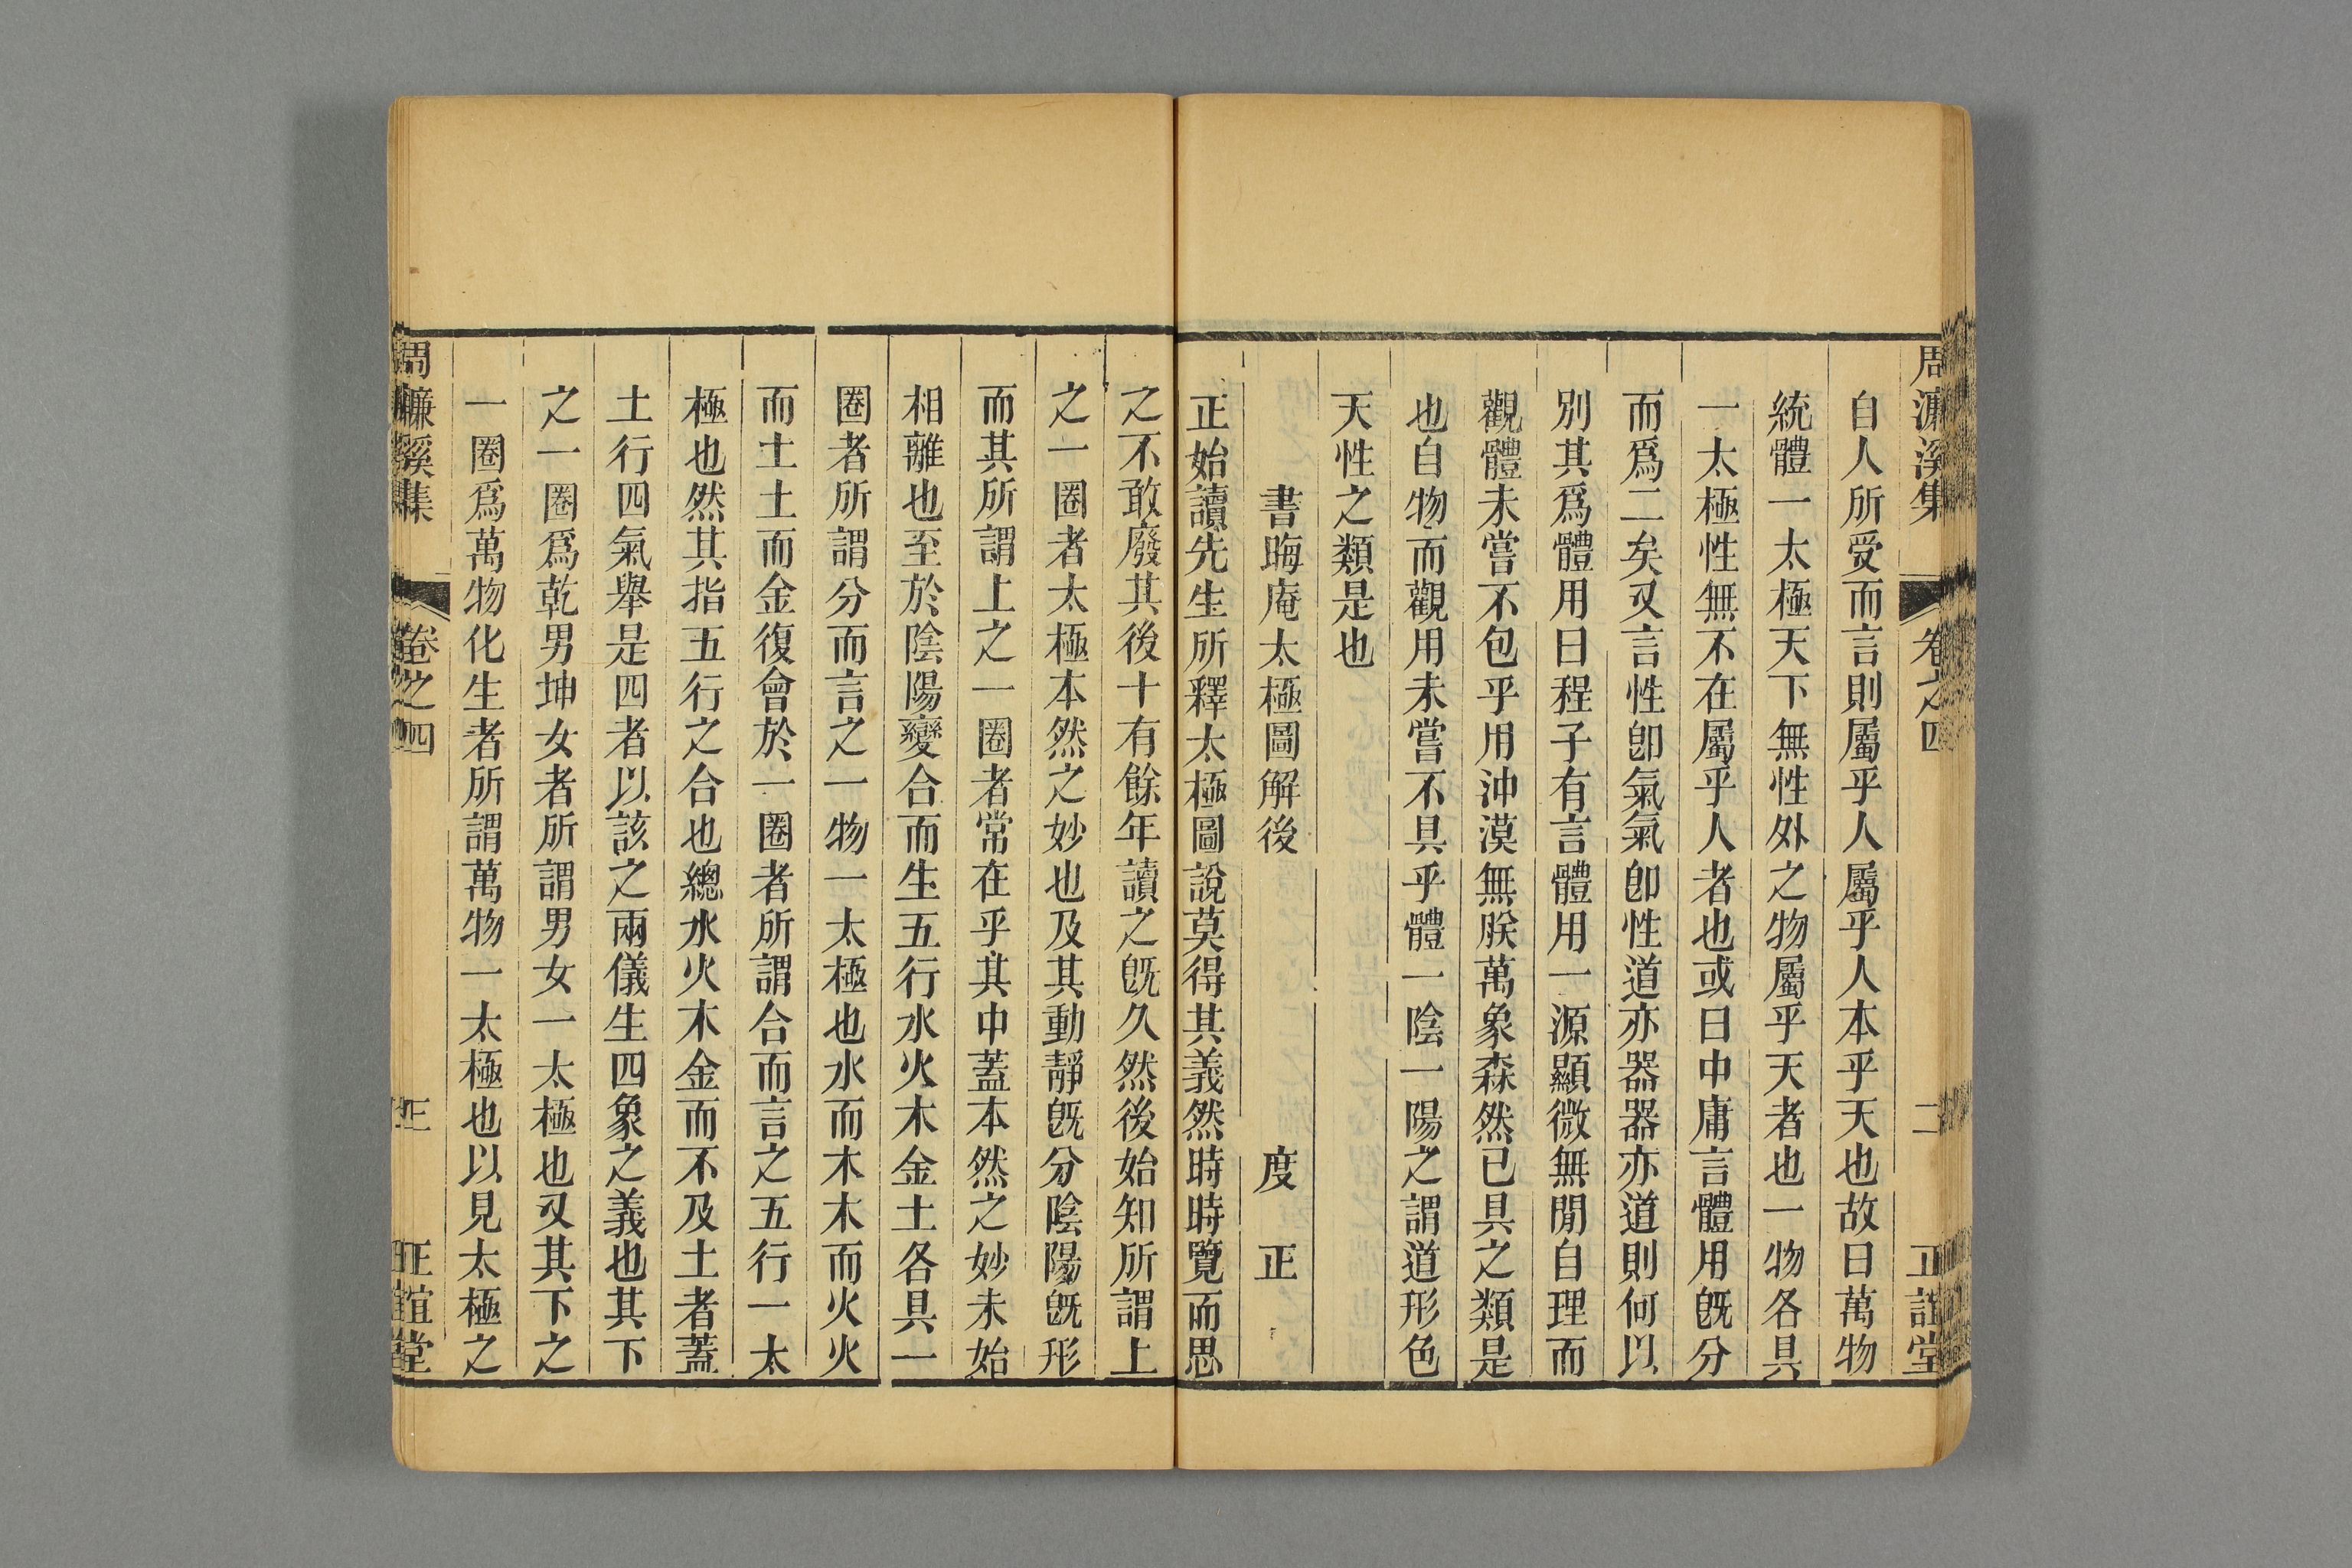 周濂溪集 卷之四 二 正誼堂
自人所受而言則屬乎人屬乎人本乎天也故曰萬物
統體一太極天下無性外之物屬乎天者也一物各具
一太極性無不在屬乎人者也或曰中庸言體用旣分
而爲二矣又言性卽氣氣卽性道亦器器亦道則何以
別其爲體用曰程子有言體用一源顯微無閒自理而
觀體未嘗不包乎用沖漠無朕萬象森然已具之類是
也自物而觀用未嘗不具乎體一陰一陽之謂道形色
天性之類是也
書晦庵太極圖解後 度正
正始讀先生所釋太極圖說莫得其義然時時覽而思
之不敢廢其後十有餘年讀之旣久然後始知所謂上
之一圈者太極本然之妙也及其動靜旣分陰陽旣形
而其所謂上之一圈者常在乎其中蓋本然之妙未始
相離也至於陰陽變合而生五行水火木金土各具一
圈者所謂分而言之一物一太極也水而木木而火火
而土土而金復會於一圈者所謂合而言之五行一太
極也然其指五行之合也總水火木金而不及土者蓋
土行四氣舉是四者以該之兩儀生四象之義也其下
之一圈爲乾男坤女者所謂男女一太極也又其下之
一圈爲萬物化生者所謂萬物一太極也以見太極之
周濂溪集 卷之四 正誼堂